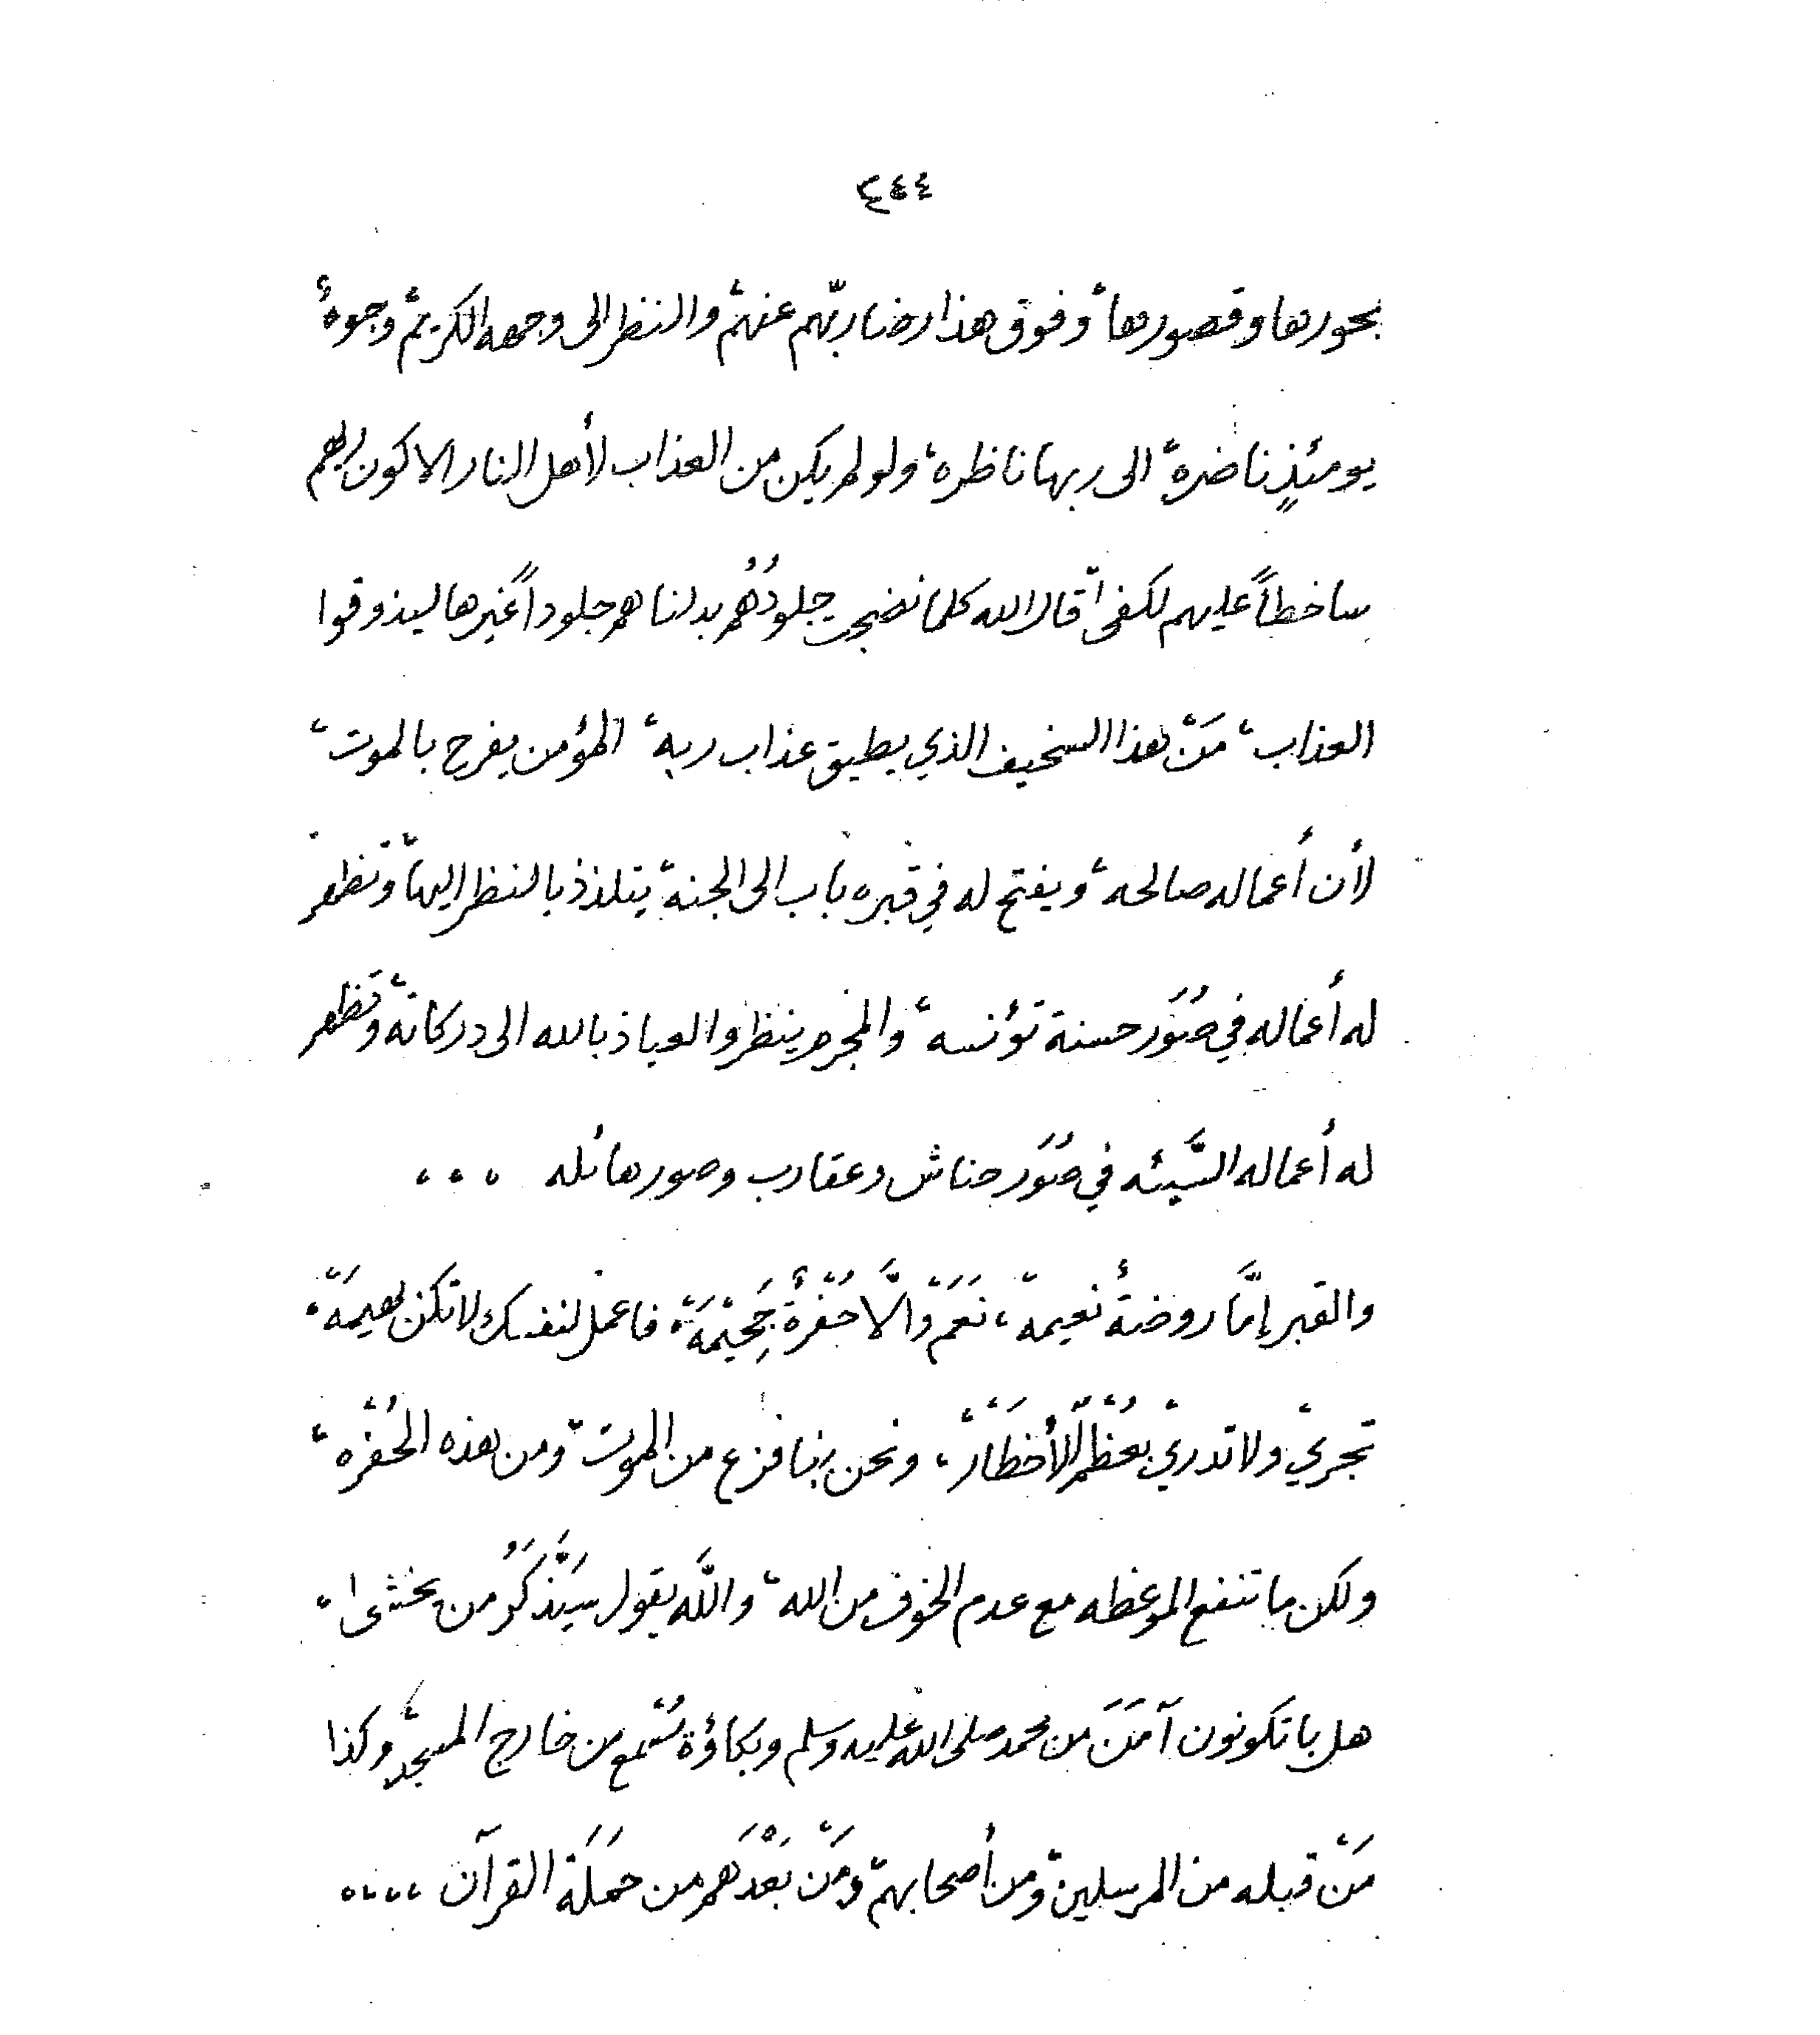 ٣٤٤
بحورها وقصورها، وفوق هذا رضا ربّهم عنهم، والنظر الى وجهه الكريم، وجوهٌ
يومئذٍ ناضره، الى ربها ناظره، ولو لم يكن من العذاب لأهل النار الا كون ربهم
ساخطاً عليهم لكفى، قال الله كلما نضجت جلودُهُم بدلناهم جلوداً غيرها ليذوقوا
العذاب، مَنْ هذا السخيف الذي يطيق عذاب ربه، المؤمن يفرح بالموت،
لأن أعماله صالحه، ويفتح له في قبره باب الى الجنه، يتلذذ بالنظر اليها، وتظهر
له أعماله في صُوَر حسنة تؤنسه، والمجرم ينظر والعياذ بالله الى دركاته، وتظهر
له أعماله السَّيئه في صُوَر حناش وعقارب وصور هائله ،،،
والقبر إمَّا روضةٌ نعيمة، نَعَمْ والَّا حُفْرةٌ جَحِيْمَهْ، فاعمل لنفسك لا تكن بهيمَهْ،
تجري ولا تدري بعُظْمِ الأخطَارْ، ونحن بنا فزع من الموت، ومن هذه الحُفْره،
ولكن ما تنفع الموعظه مع عدم الخوف من الله، والله يقول سَيَذَّكَّرُ من يخشى،
هل باتكونون آمَنَ من محمد صلى الله عليه وسلم وبكاؤه يُسْمع من خارج المسجد، وكذا
مَنْ قبله من المرسلين، ومن أصحابهم، ومَن بَعْدَهم من حَمَلَة القرآن ،،،،